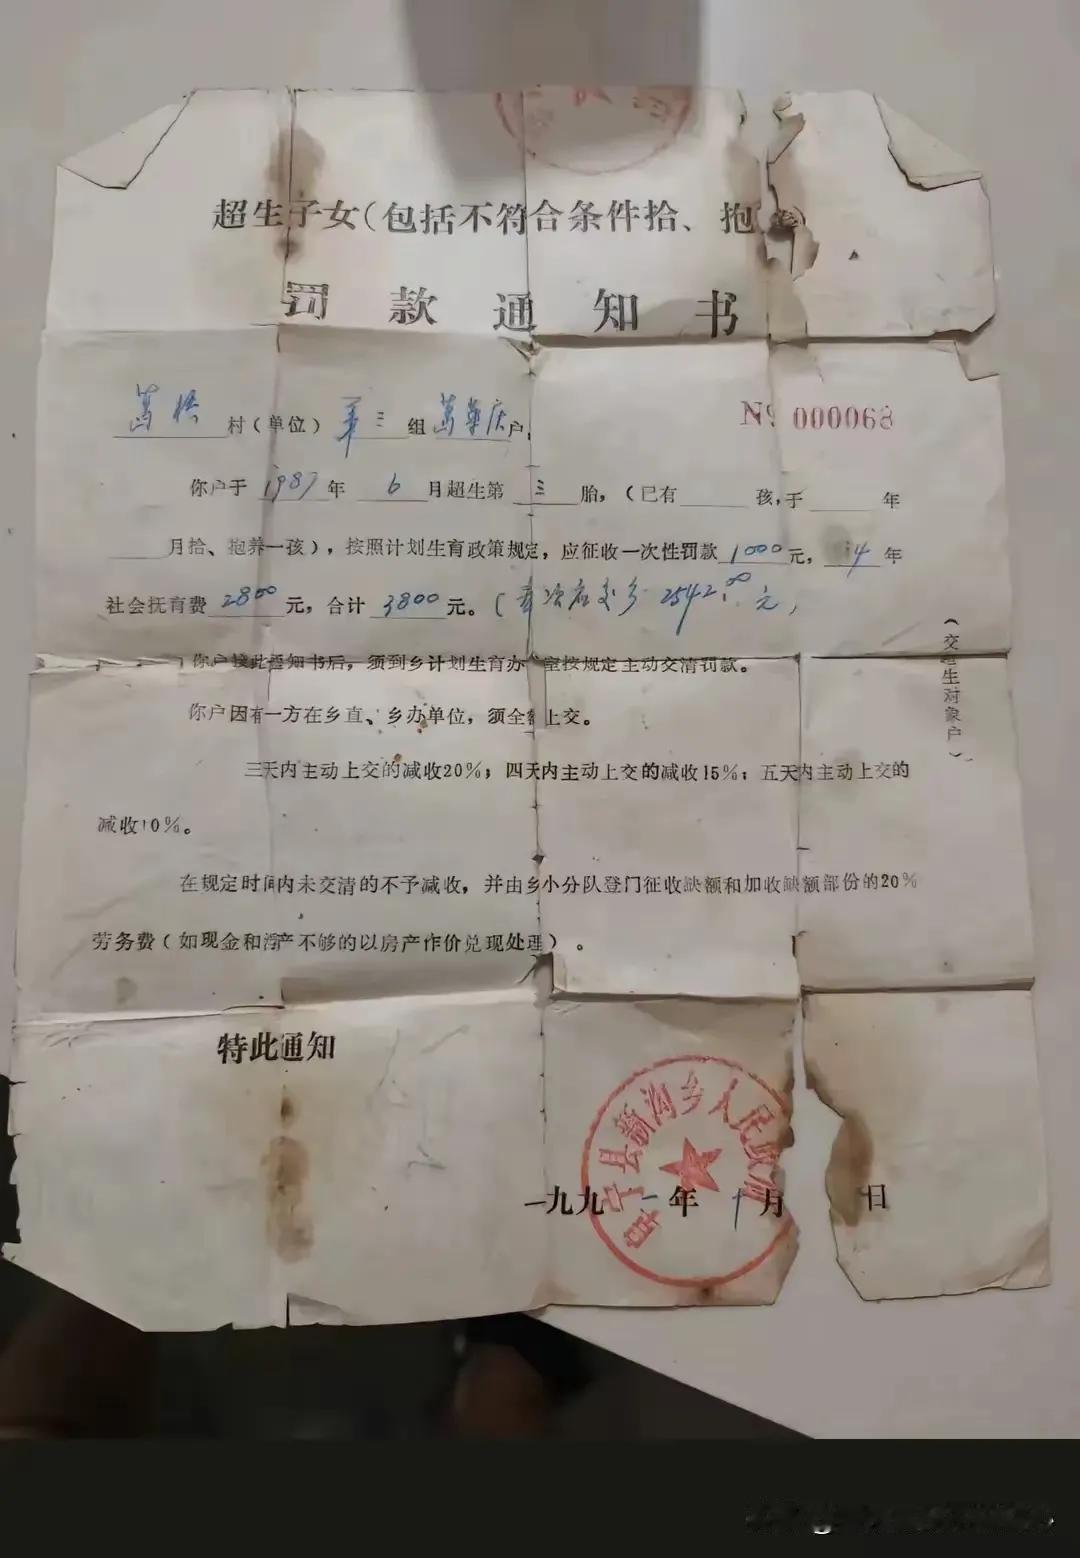 超生子女(包括不符合条件拾、抱养)
罚款通知书
№ 000068
葛 村(单位) 第三 组 葛华庆 户,
你户于 1987 年 6 月超生第 三 胎,(已有 孩,于 年
月拾、抱养一孩),按照计划生育政策规定,应征收一次性罚款 1000 元, 14 年
社会抚育费 2800 元,合计 3800 元。( 2542.00 元)
你户接此通知书后,须到乡计划生育办 室按规定主动交清罚款。
你户因有一方在乡直、乡办单位,须全额上交。
三天内主动上交的减收20%;四天内主动上交的减收15%;五天内主动上交的
减收10%。
在规定时间内未交清的不予减收,并由乡小分队登门征收缺额和加收缺额部份的20%
劳务费(如现金和浮产不够的以房产作价兑现处理)。
(交超生对象户)
特此通知
县新沟乡人民政府
一九九一年 月 日